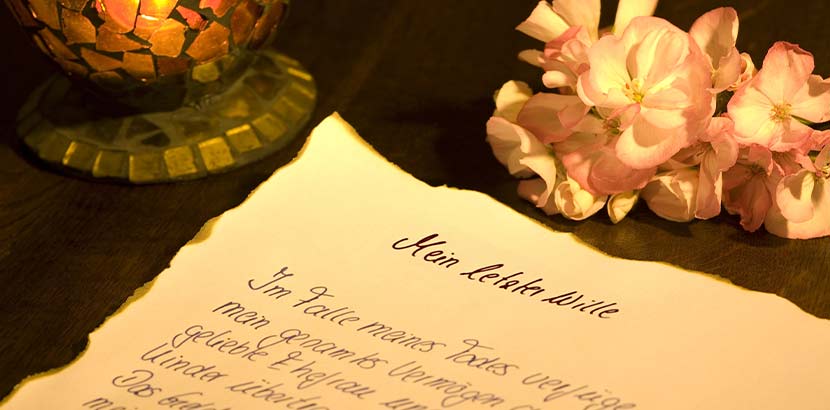 Mein letzter Wille
Im Falle meines Todes verfüge
mein gesamtes Vermögen
geliebte Ehefrau un
Kinder übertr
Das